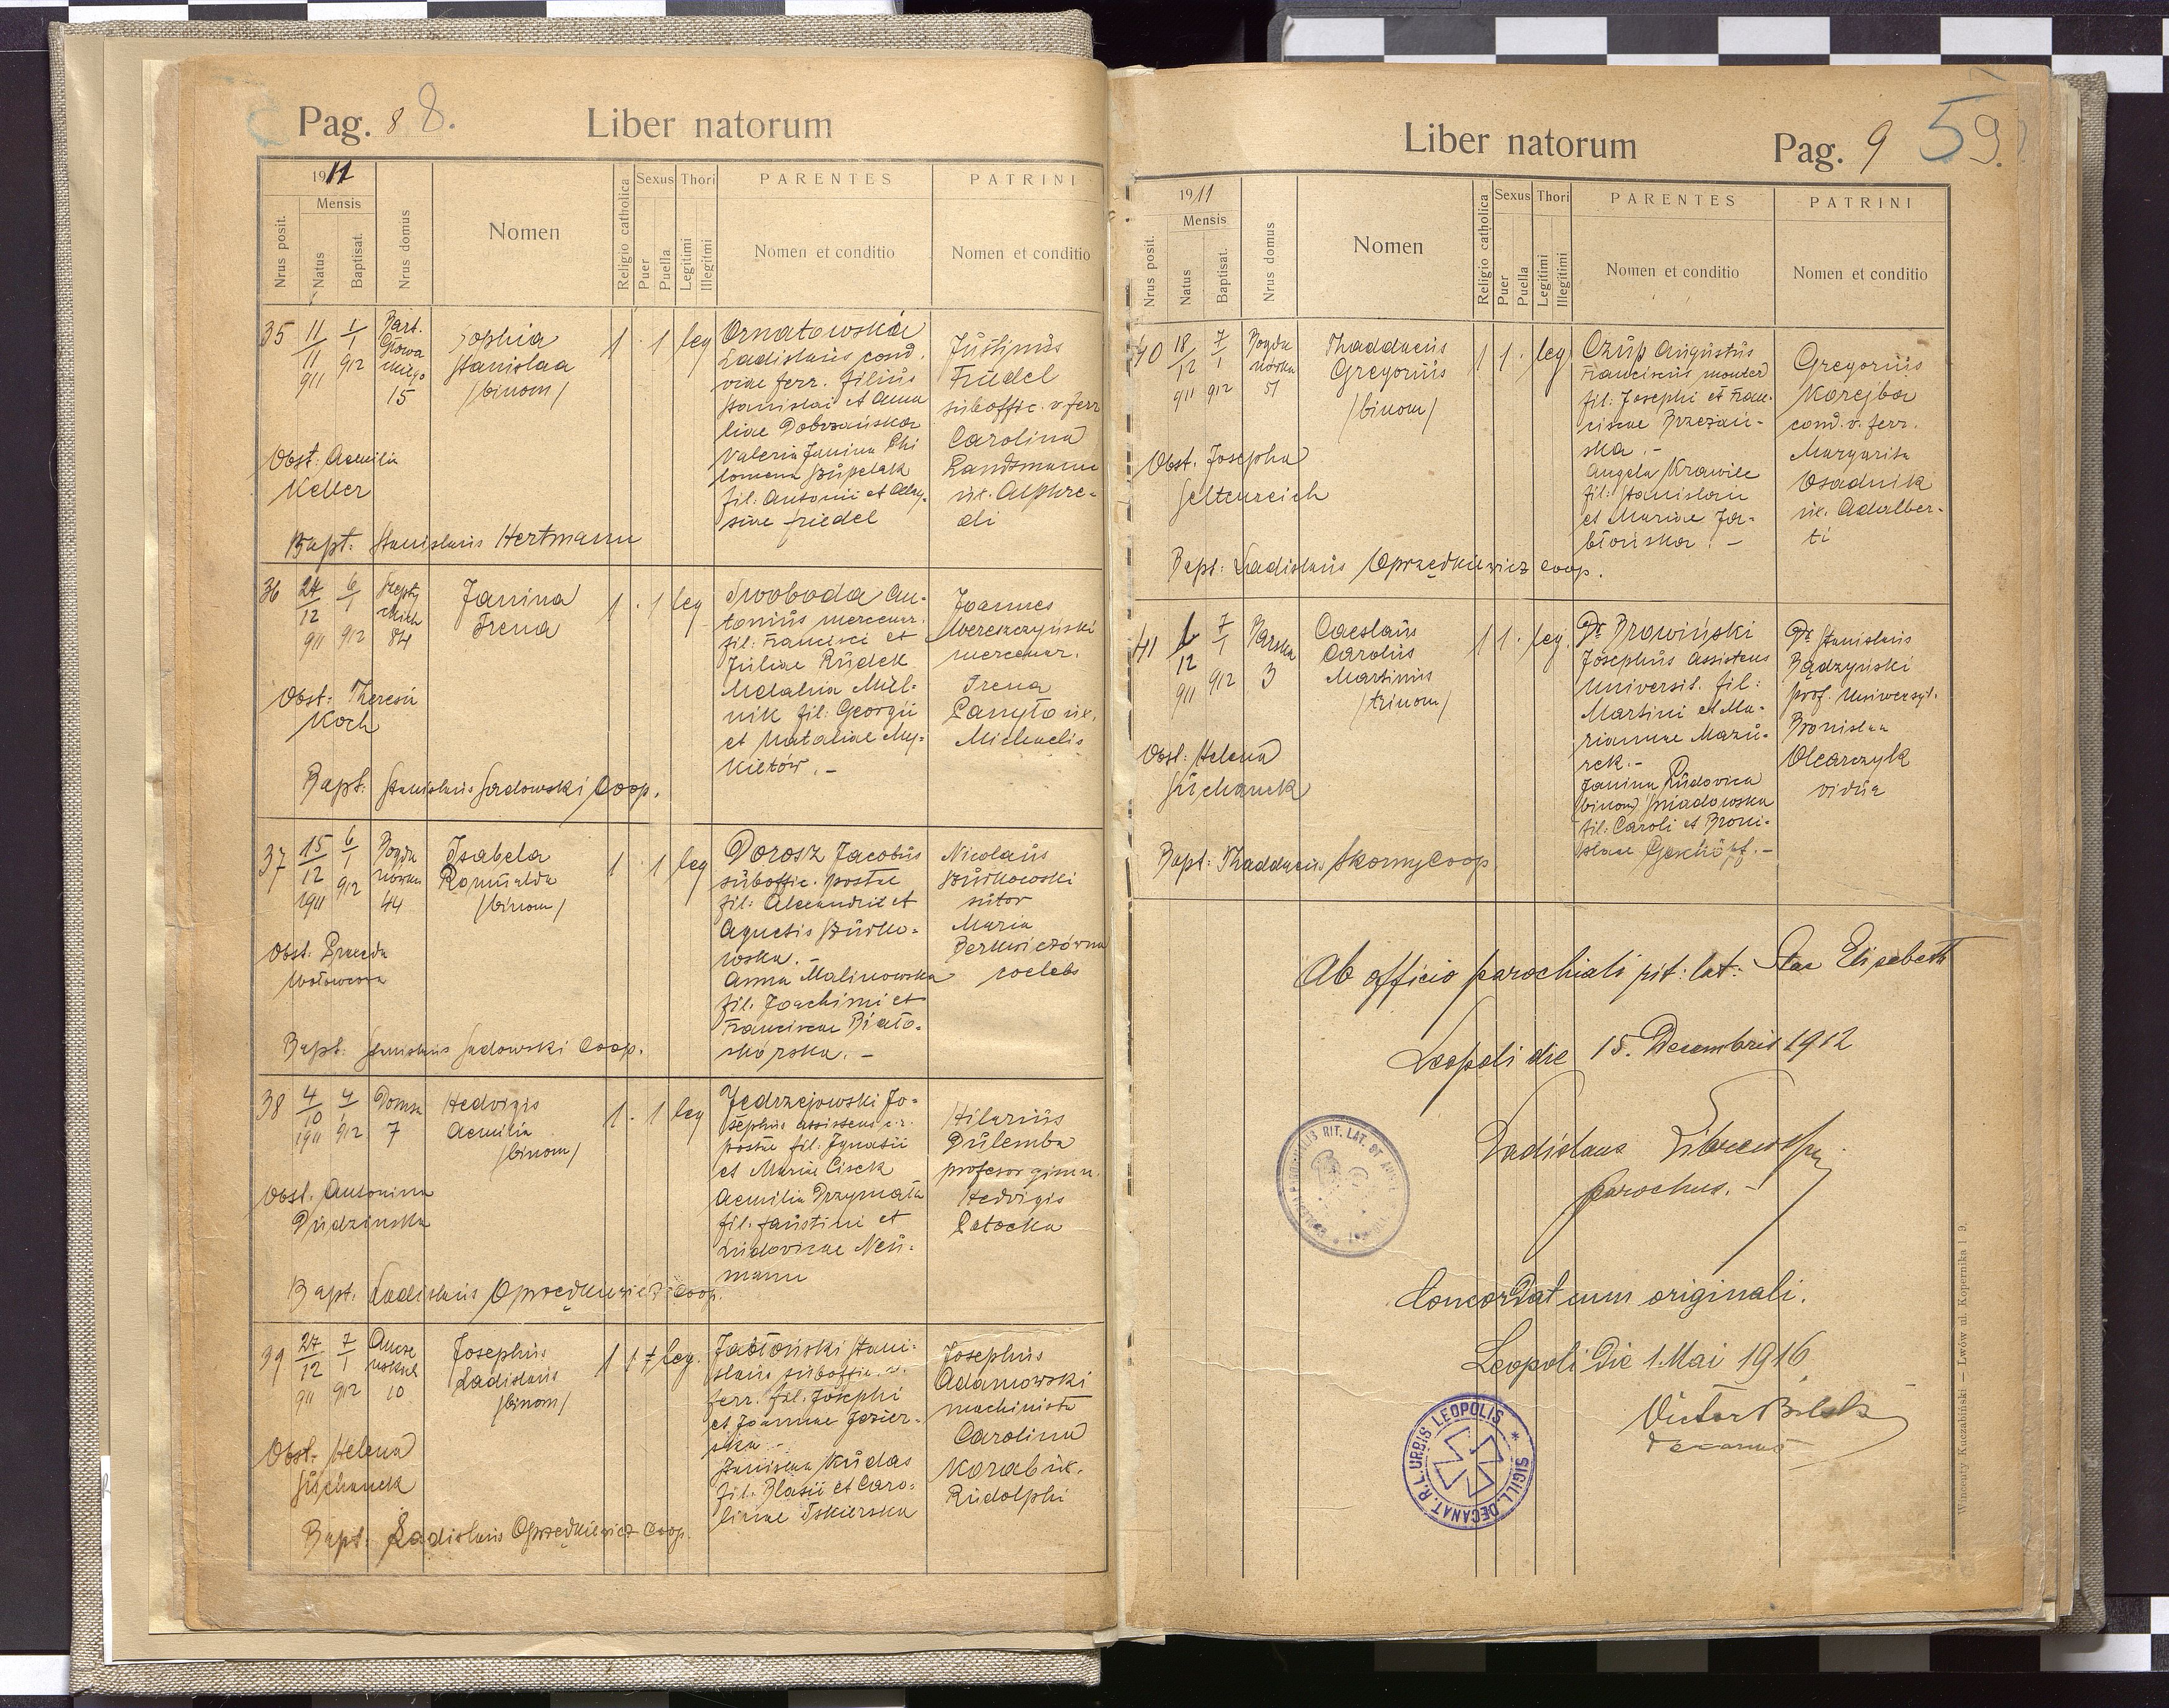 Pag. 8 8.
Liber natorum
1911
Mensis
Nrus posit.
Natus
Baptisat.
Nrus domus
Nomen
Religio catholica
Sexus
Puer
Puella
Thori
Legitimi
Illegitmi
PARENTES
Nomen et conditio
PATRINI
Nomen et conditio
35
11/11 911
1/1 912
15
Sophia
Stanislaa
/binom/
1 . 1 leg
Ornatowski
Ladislaus cond.
viae ferr. filius
Stanislai et Ama
liae Dobrzańska
Valeria Janina Phi
lomena Szúpelak
fil: Antonii et
Friedel
Jústinús
Friedel
súboffic. v. ferr
Carolina
Landsmann
úx. Alphre-
di
Obst: Aemilia
Keller
Bapt: Stanislaús Hertmann
36
24/12 911
6/1 912
84
Janina
Irena
1 . 1 leg
Swoboda An-
toniús mercenar.
fil: Francisci et
Júliae Rúdek
Melania Mél-
nik fil: Georgii
et Nataliae My-
kietów. -
Joannes
Wereszczyński
mercenar.
Irena
Lanyto úx.
Michaelis
Obst: Theresia
Koch
Bapt. Stanislaús Sadowski Coop.
37
15/12 1911
6/1 912
Bogda
nówka
44
Isabela
Romúalda
/binom/
1 . 1 leg
Dorosz Jacobús
súboffic. postae
fil: Alexandri et
Agnetis Szúrko-
wska. -
Anna Malinowska
fil. Joachimi et
Franciscae Biało-
skórska. -
Nicolaús
Szúrkowski
sútor
Maria
Berkiewiczówna
coelebs
Obst.
Wołowcowa
Bapt. Stanislaús Sadowski Coop.
38
4/10 1911
912
7
Hedvigis
Aemilia
/binom/
1 . 1 leg
Jedrzejowski Jo-
sephús assistens c.r.
postae fil. Ignatii
et Mariae Cisek
Aemilia Drzymała
fil. Faústini et
Lúdovicae Neú-
mann
Hilariús
Dúlemba
profesor gimn.
Hedvigis
Latocka
Obst. Antonina
Dúdzińska
Bapt. Ladislaús Oprzędkiewicz Coop.
39
27/12 911
7/1 912
10
Josephús
Ladislaús
/binom/
1 1 . leg.
Jabłoński Stani-
slaús súboffic. v.
ferr. fil. Josephi
et Joannae Jezier-
ska -
Stanislaa Kúdas
fil. Blasii et Caro-
linae Iskierska
Josephús
Adamowski
machinista
Carolina
Korab úx.
Rúdolphi
Obst. Helena
Súchanek
Bapt: Ladislaús Oprzędkiewicz Coop.
Liber natorum
Pag. 9 59.
1911
Mensis
Nrus posit.
Natus
Baptisat.
Nrus domus
Nomen
Religio catholica
Sexus
Puer
Puella
Thori
Legitimi
Illegitimi
PARENTES
Nomen et conditio
PATRINI
Nomen et conditio
40
18/12 911
7/1 912
Bogda
nówka
51
Thaddaeús
Gregoriús
/binom/
1 1 . leg
Czúp Aúgústús
Franciscús monter
fil: Josephi et Fran-
ciscae Brzezań-
ska. -
Angela Krawiec
fil: Stanislai
et Mariae Ja-
błońska. -
Gregoriús
Korejba
cond. v. ferr.
Margarita
Osadnik
úx. Adalber-
ti
Obst. Josepha
Seltenreich
Bapt: Ladislaús Oprzędkiewicz Coop.
41
12 911
7/1 912
Barska
3
Caeslaús
Carolús
Martinús
/trinom/
1 1 . leg.
Dr. Browiński
Josephús assistens
Universit. fil:
Martini et Ma-
riannae Mazú-
rek. -
Janina Lúdovica
/binom/ Sniadowska
fil: Caroli et Broni-
slaae Geschöpf. -
Dr. Stanislaús
Bądzyński
prof. Uniwersyt.
Bronislaa
Olearczyk
vidúa
Obst: Helena
Súchanek
Bapt: Thaddaeús Skorny Coop
Ab officio parochiali rit: lat: Stae Elisabeth
Leopoli die 15. Decembris 1912
Ladislaus
parochus. -
Concordat cum originali.
Leopoli die 1. Mai 1916
Victor
Decanus
SIGILL. DECANAT. R.L. URBIS LEOPOLIS
Wincenty Kuczabiński — Lwów ul. Kopernika 19.